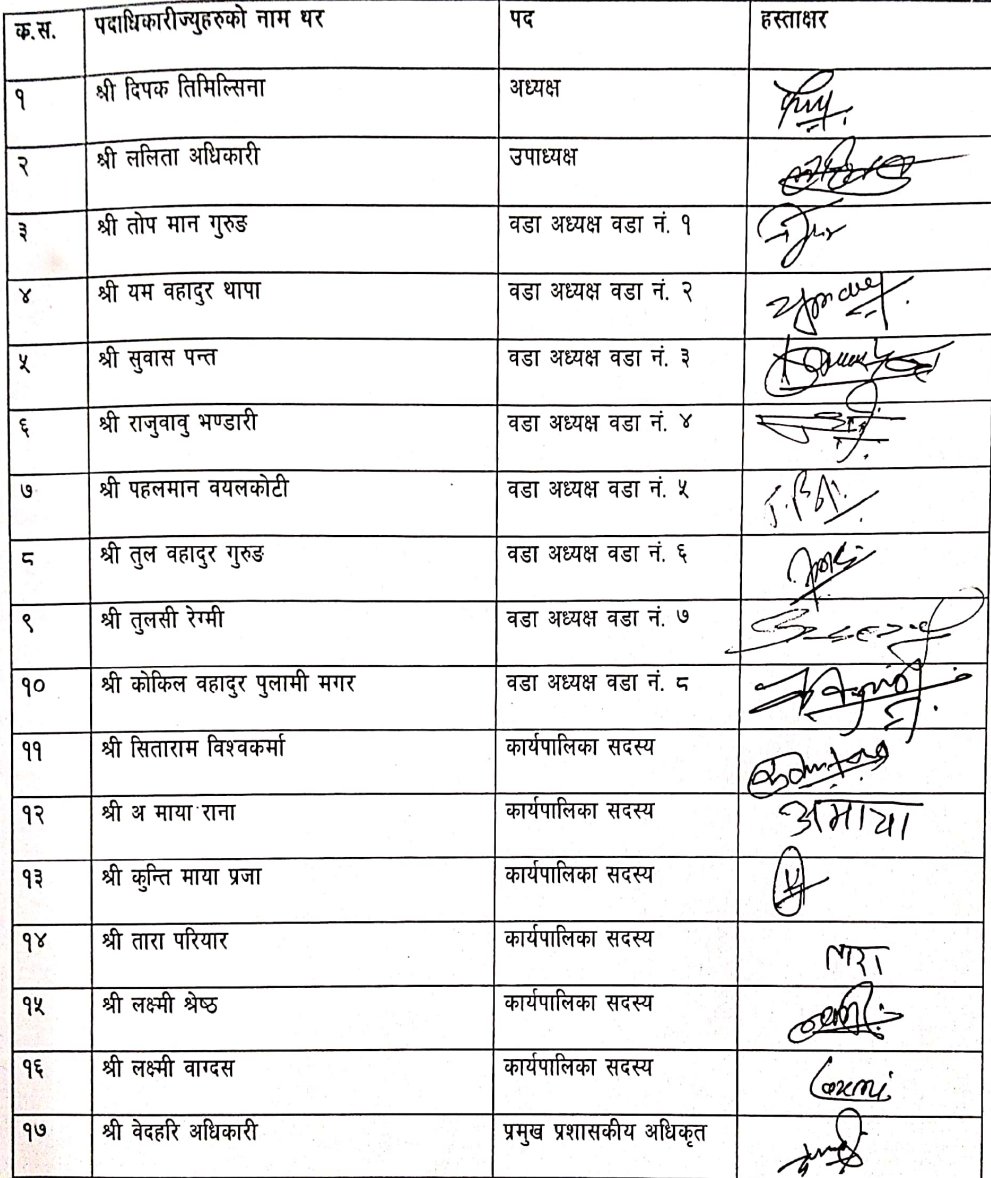 क.स. पदाधिकारीज्युहरुको नाम थर पद हस्ताक्षर
१ श्री दिपक तिमिल्सिना अध्यक्ष
२ श्री ललिता अधिकारी उपाध्यक्ष
३ श्री तोप मान गुरुङ वडा अध्यक्ष वडा नं. १
४ श्री यम वहादुर थापा वडा अध्यक्ष वडा नं. २
५ श्री सुवास पन्त वडा अध्यक्ष वडा नं. ३
६ श्री राजुवावु भण्डारी वडा अध्यक्ष वडा नं. ४
७ श्री पहलमान वयलकोटी वडा अध्यक्ष वडा नं. ५
८ श्री तुल वहादुर गुरुङ वडा अध्यक्ष वडा नं. ६
९ श्री तुलसी रेग्मी वडा अध्यक्ष वडा नं. ७
१० श्री कोकिल वहादुर पुलामी मगर वडा अध्यक्ष वडा नं. ८
११ श्री सिताराम विश्वकर्मा कार्यपालिका सदस्य
१२ श्री अ माया राना कार्यपालिका सदस्य अमाया
१३ श्री कुन्ति माया प्रजा कार्यपालिका सदस्य
१४ श्री तारा परियार कार्यपालिका सदस्य तारा
१५ श्री लक्ष्मी श्रेष्ठ कार्यपालिका सदस्य
१६ श्री लक्ष्मी वाग्दस कार्यपालिका सदस्य Laxmi
१७ श्री वेदहरि अधिकारी प्रमुख प्रशासकीय अधिकृत